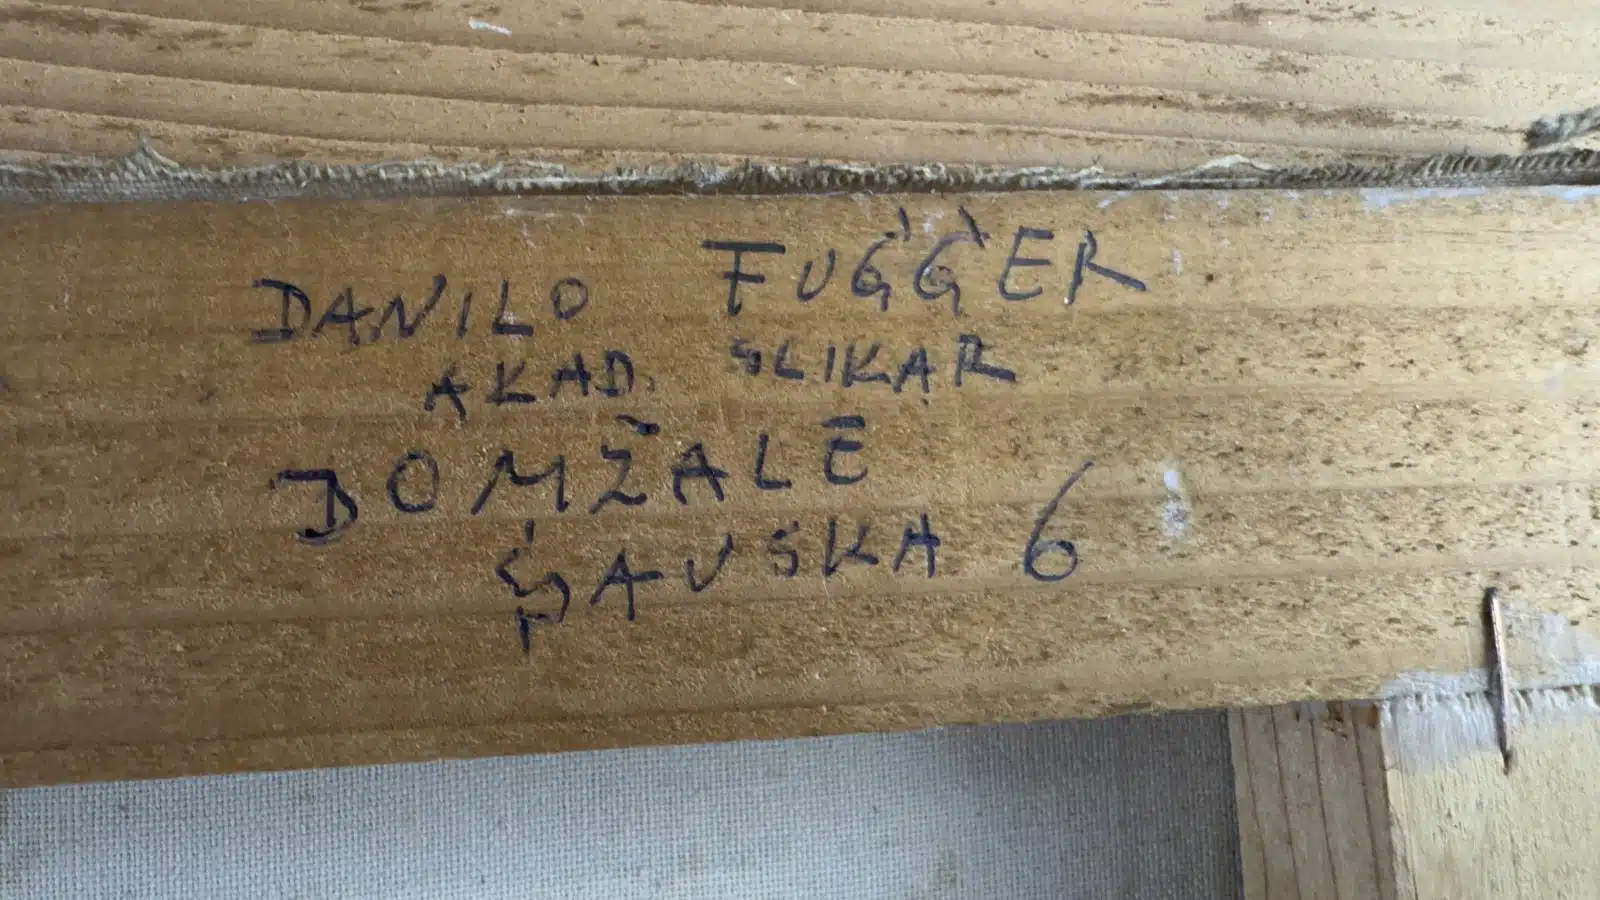 DANILO FUGGER
AKAD. SLIKAR
DOMŽALE
SAVSKA 6